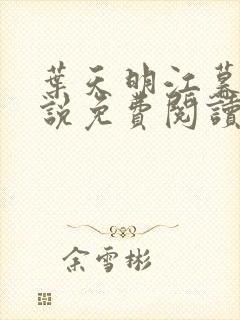 葉天明江慕
說免費閱讀
余雪彬